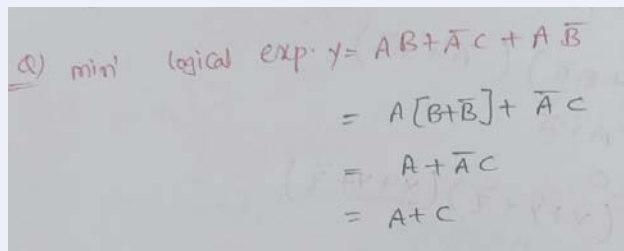 Q) min' logical exp. y = AB + A̅C + AB̅
= A[B+B̅] + A̅C
= A + A̅C
= A + C